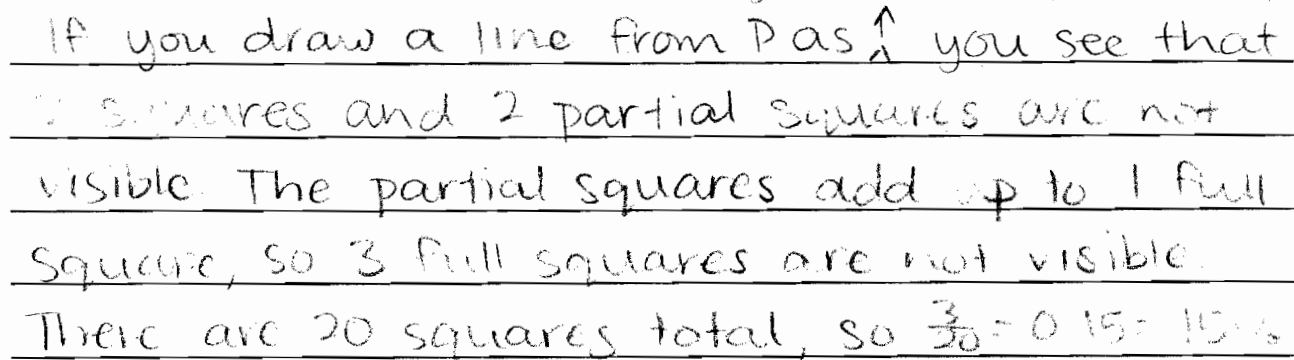 If you draw a line from D as ↑ you see that
2 squares and 2 partial squares are not
visible. The partial squares add up to 1 full
square, so 3 full squares are not visible.
There are 20 squares total, so 3/20 = 0.15 = 15%